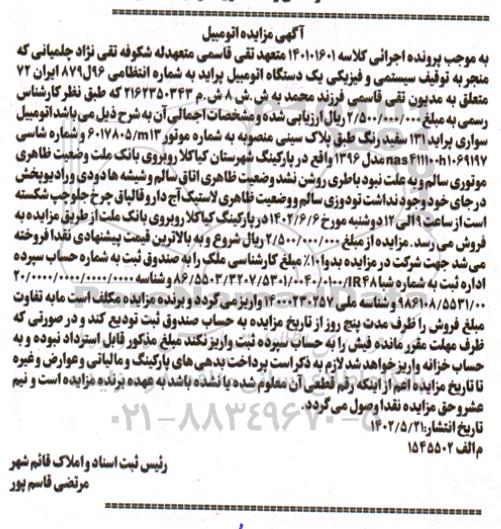 آگهی مزایده اتومبیل
به موجب پرونده اجرائی کلاسه ۱۴۰۱۰۱۶۰۱ متعهد تقی قاسمی متعهدله شکوفه تقی نژاد چلمیانی که
منجر به توقیف سیستمی و فیزیکی یک دستگاه اتومبیل پراید به شماره انتظامی ۹۶ل۸۷۹ ایران ۷۲
متعلق به مدیون تقی قاسمی فرزند محمد به ش.ش ۸ ش.م ۲۱۶۲۳۵۰۳۴۳ که طبق نظر کارشناس
رسمی به مبلغ ۲/۵۰۰/۰۰۰/۰۰۰ ریال ارزیابی شده و مشخصات اجمالی آن به شرح ذیل می باشد اتومبیل
سواری پراید ۱۳۱ سفید رنگ طبق پلاک سینی منصوبه به شماره موتور ۶۰۱۷۸۰۵/m۱۳ و شماره شاسی
nas۴۱۱۱۰۰h۱۰۶۹۱۹۷ مدل ۱۳۹۶ واقع در پارکینگ شهرستان کیاکلا روبروی بانک ملت وضعیت ظاهری
موتوری سالم و به علت نبود باطری روشن نشد وضعیت ظاهری اتاق سالم و شیشه ها دودی و رادیو پخش
در جای خود وجود نداشت تودوزی سالم و وضعیت ظاهری لاستیک آج دار و قالپاق چرخ جلو چپ شکسته
است از ساعت ۹ الی ۱۲ دوشنبه مورخ ۱۴۰۲/۶/۶ در پارکینگ کیاکلا روبروی بانک ملت از طریق مزایده به
فروش می رسد. مزایده از مبلغ ۲/۵۰۰/۰۰۰/۰۰۰ ریال شروع و به بالاترین قیمت پیشنهادی نقدا فروخته
می شد جهت شرکت در مزایده بدوا ۱۰٪ مبلغ کارشناسی ملک را به صندوق ثبت به شماره حساب سپرده
اداره ثبت به شماره شبا IR۴۸/۰۱۰۰/۰۰۴۰/۵۳۰۱/۳۲۰۷/۵۵۰۳/۸۶ و شناسه ۲۰/۰۰۰۰/۰۰۰۰/۰۰۰۰
۹۸۶۱۰۸/۵۵۳۱/۰۰ و شناسه ملی ۱۴۰۰۰۲۳۰۲۵۷ واریز می گردد و برنده مزایده مکلف است مابه تفاوت
مبلغ فروش را ظرف مدت پنج روز از تاریخ مزایده به حساب صندوق ثبت تودیع کند و در صورتی که
ظرف مهلت مقرر مانده فیش را به حساب سپرده ثبت واریز نکند مبلغ مذکور قابل استرداد نبوده و به
حساب خزانه واریز خواهد شد لازم به ذکر است پرداخت بدهی های پارکینگ و مالیاتی و عوارض و غیره
تا تاریخ مزایده اعم از اینکه رقم قطعی آن معلوم شده یا نشده باشد به عهده برنده مزایده است و نیم
عشر و حق مزایده نقدا وصول می گردد.
تاریخ انتشار: ۱۴۰۲/۵/۲۱
م الف ۱۵۴۵۵۰۲
رئیس ثبت اسناد و املاک قائم شهر
مرتضی قاسم پور
۰۲۱-۸۸۳۴۹۶۷۰